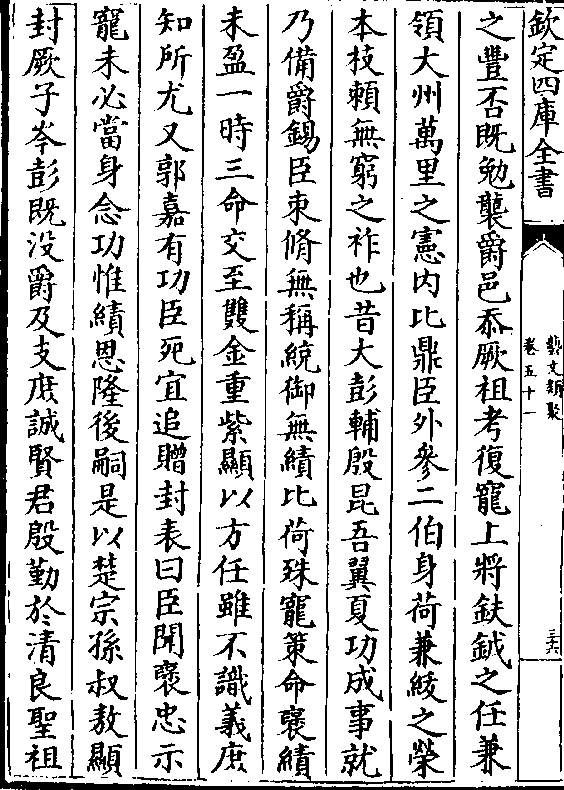 欽定四庫全書
藝文類聚
卷五十一
三六
之豐否既勉襲爵邑忝厥祖考復寵上將鈇鉞之任兼
領大州萬里之憲内比鼎臣外參二伯身荷兼紱之榮
本枝賴無窮之祚也昔大彭輔殷昆吾翼夏功成事就
乃備爵錫臣束脩無稱統御無績比荷殊寵策命襃績
未盈一時三命交至雙金重紫顯以方任雖不識義庶
知所尤又郭嘉有功臣死宜追贈封表曰臣聞襃忠示
寵未必當身念功惟績恩隆後嗣是以楚宗孫叔敖顯
封厥子岑彭既没爵及支庶誠賢君殷勤於清良聖祖